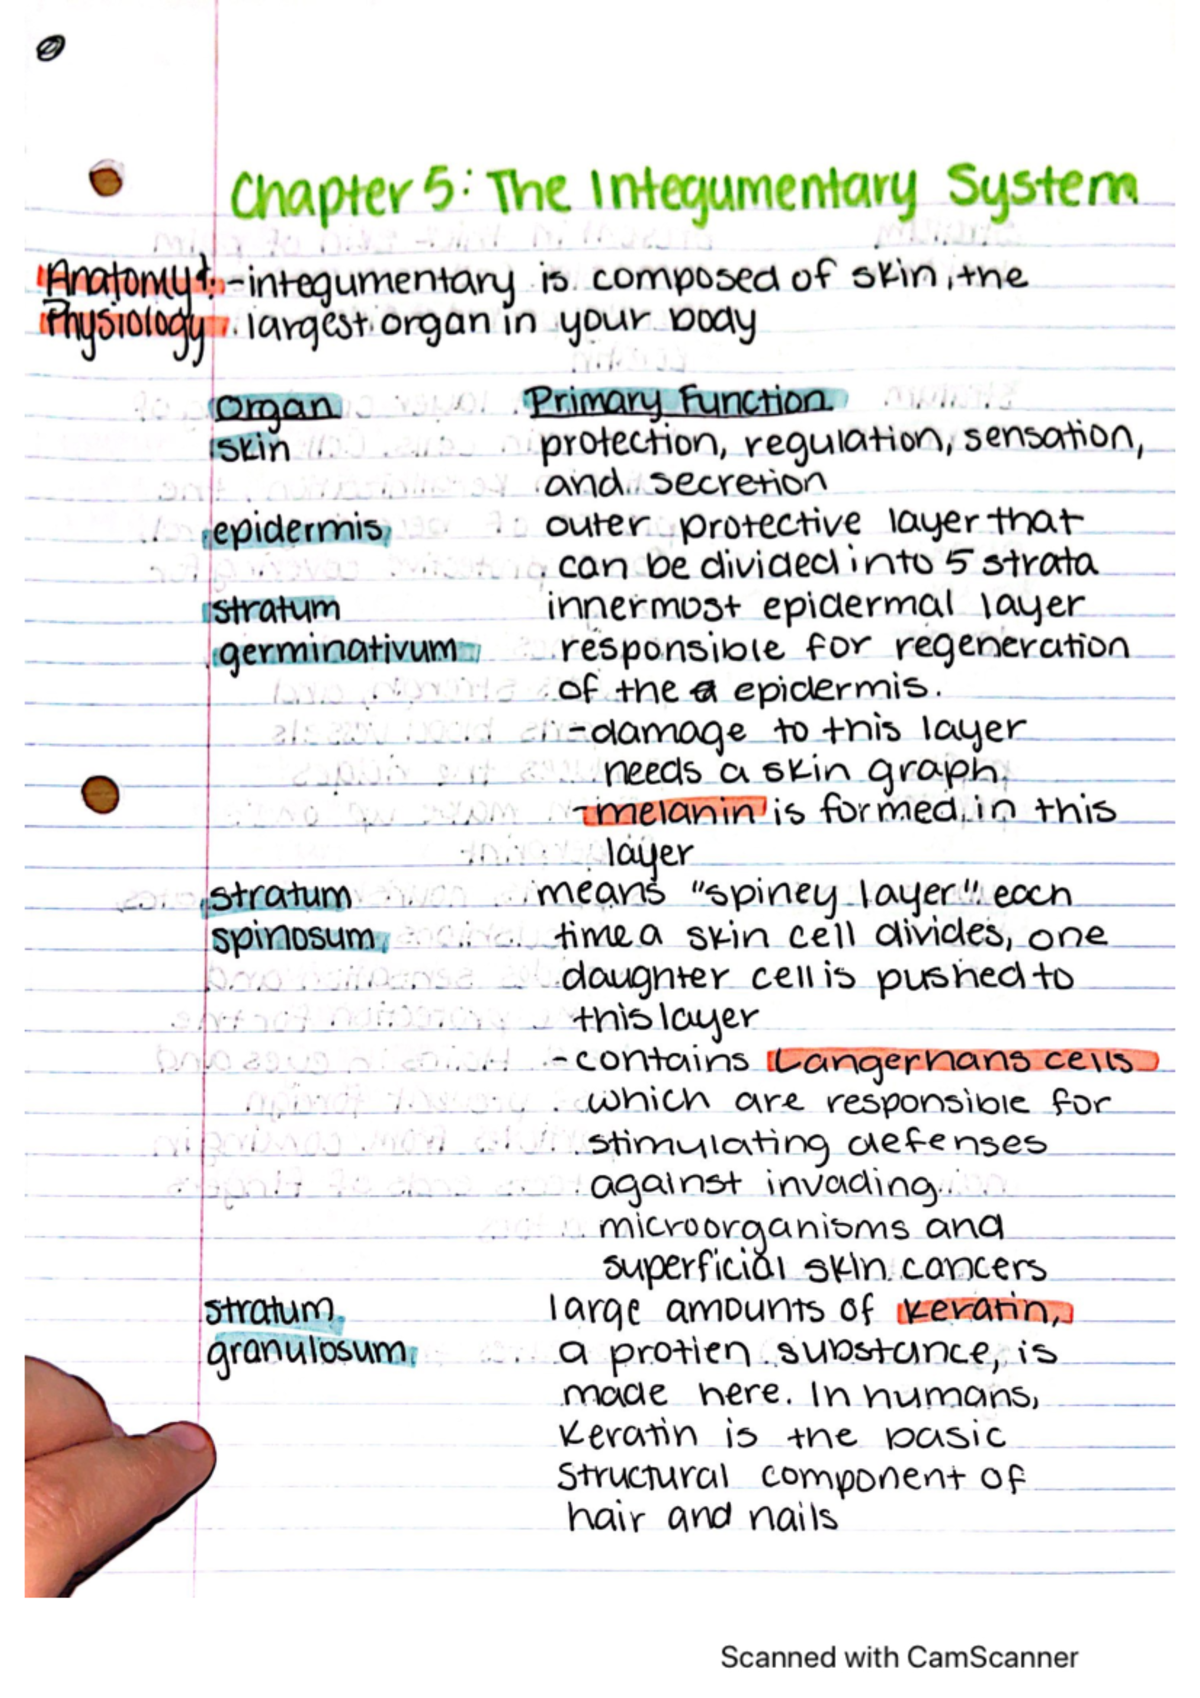 Chapter 5: The Integumentary System
Anatomy & -integumentary is composed of skin, the
Physiology largest organ in your body
Organ Primary Function
skin protection, regulation, sensation,
and secretion
epidermis outer protective layer that
can be divided into 5 strata
stratum innermost epidermal layer
germinativum responsible for regeneration
of the epidermis.
-damage to this layer
needs a skin graph
-melanin is formed in this
layer
stratum means "spiney layer" each
spinosum time a skin cell divides, one
daughter cell is pushed to
this layer
-contains Langerhans cells
which are responsible for
stimulating defenses
against invading
microorganisms and
superficial skin cancers
stratum large amounts of keratin,
granulosum a protien substance, is
made here. In humans,
Keratin is the basic
structural component of
hair and nails
Scanned with CamScanner